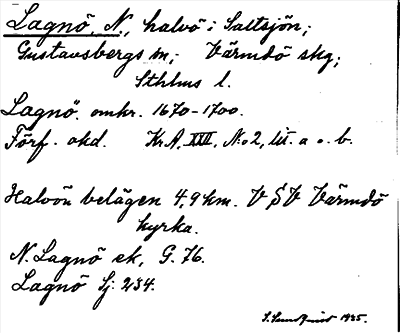 Lagnö, N., halvö i Saltsjön;
Gustavsbergs sn; Värmdö skg;
Sthlms l.
Lagnö, omkr. 1670-1700.
Förf. okd. Kr.A, XXII, No 2, lit. a o. b.
Halvön belägen 4,9 km. V SV Värmdö
kyrka.
N. Lagnö ek, G. 76.
Lagnö Sj: 234.
1935.